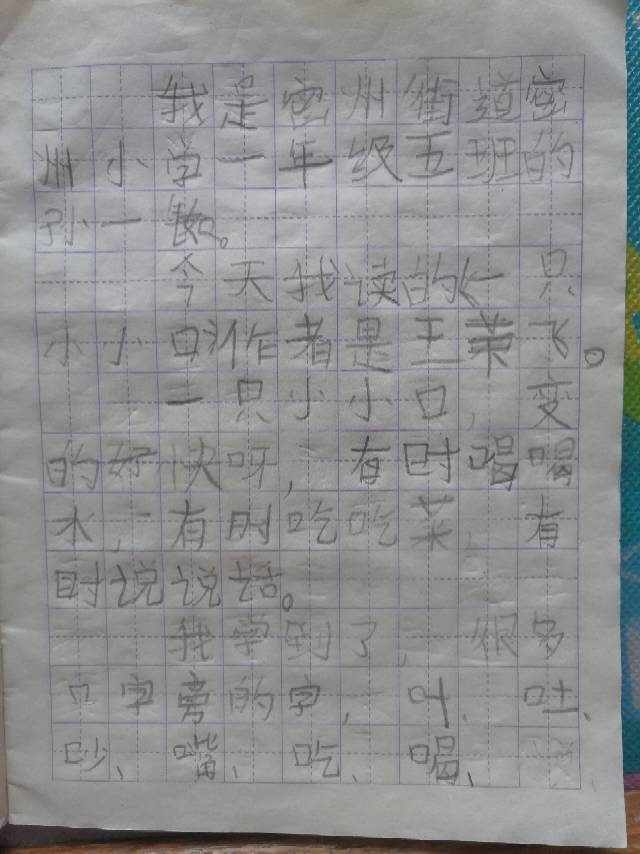 我是密州街道密
州小学一年级五班的
孙一
今天我读的《一只
小小口》作者是王荣飞。
一只小小口，变
的好快呀，有时喝喝
水，有时吃吃菜，有
时说说话。
我学到了，很多
口字旁的字，叶、吐、
吵、嘴、吃、喝、